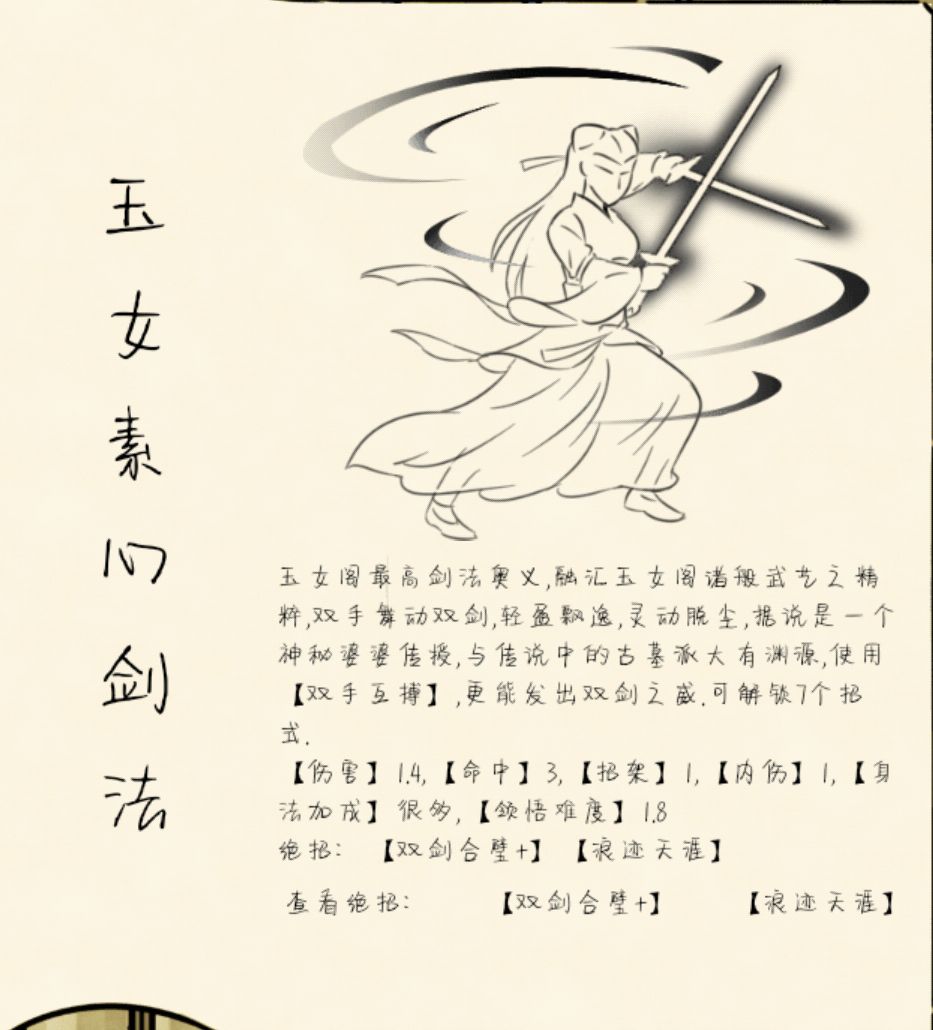 玉女素心剑法
玉女阁最高剑法奥义,融汇玉女阁诸般武艺之精
粹,双手舞动双剑,轻盈飘逸,灵动脱尘,据说是一个
神秘婆婆传授,与传说中的古墓派大有渊源,使用
【双手互搏】,更能发出双剑之威.可解锁7个招
式.
【伤害】1.4,【命中】3,【招架】1,【内伤】1,【身
法加成】很多,【领悟难度】1.8
绝招: 【双剑合璧+】 【浪迹天涯】
查看绝招: 【双剑合璧+】 【浪迹天涯】